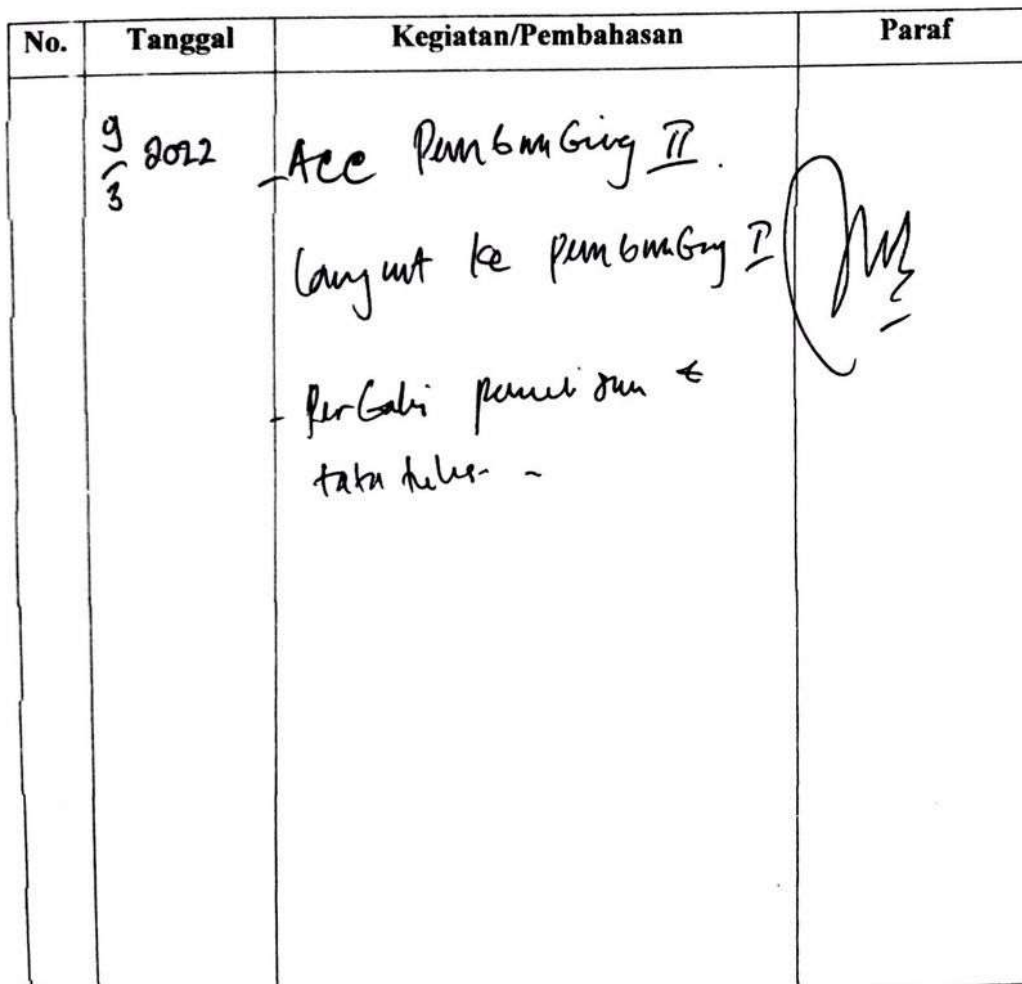 No. Tanggal Kegiatan/Pembahasan Paraf
9/3 2022 - Acc Pembimbing II.
lanjut ke pembimbing I
- Perbaiki penulisan &
tata tulis -